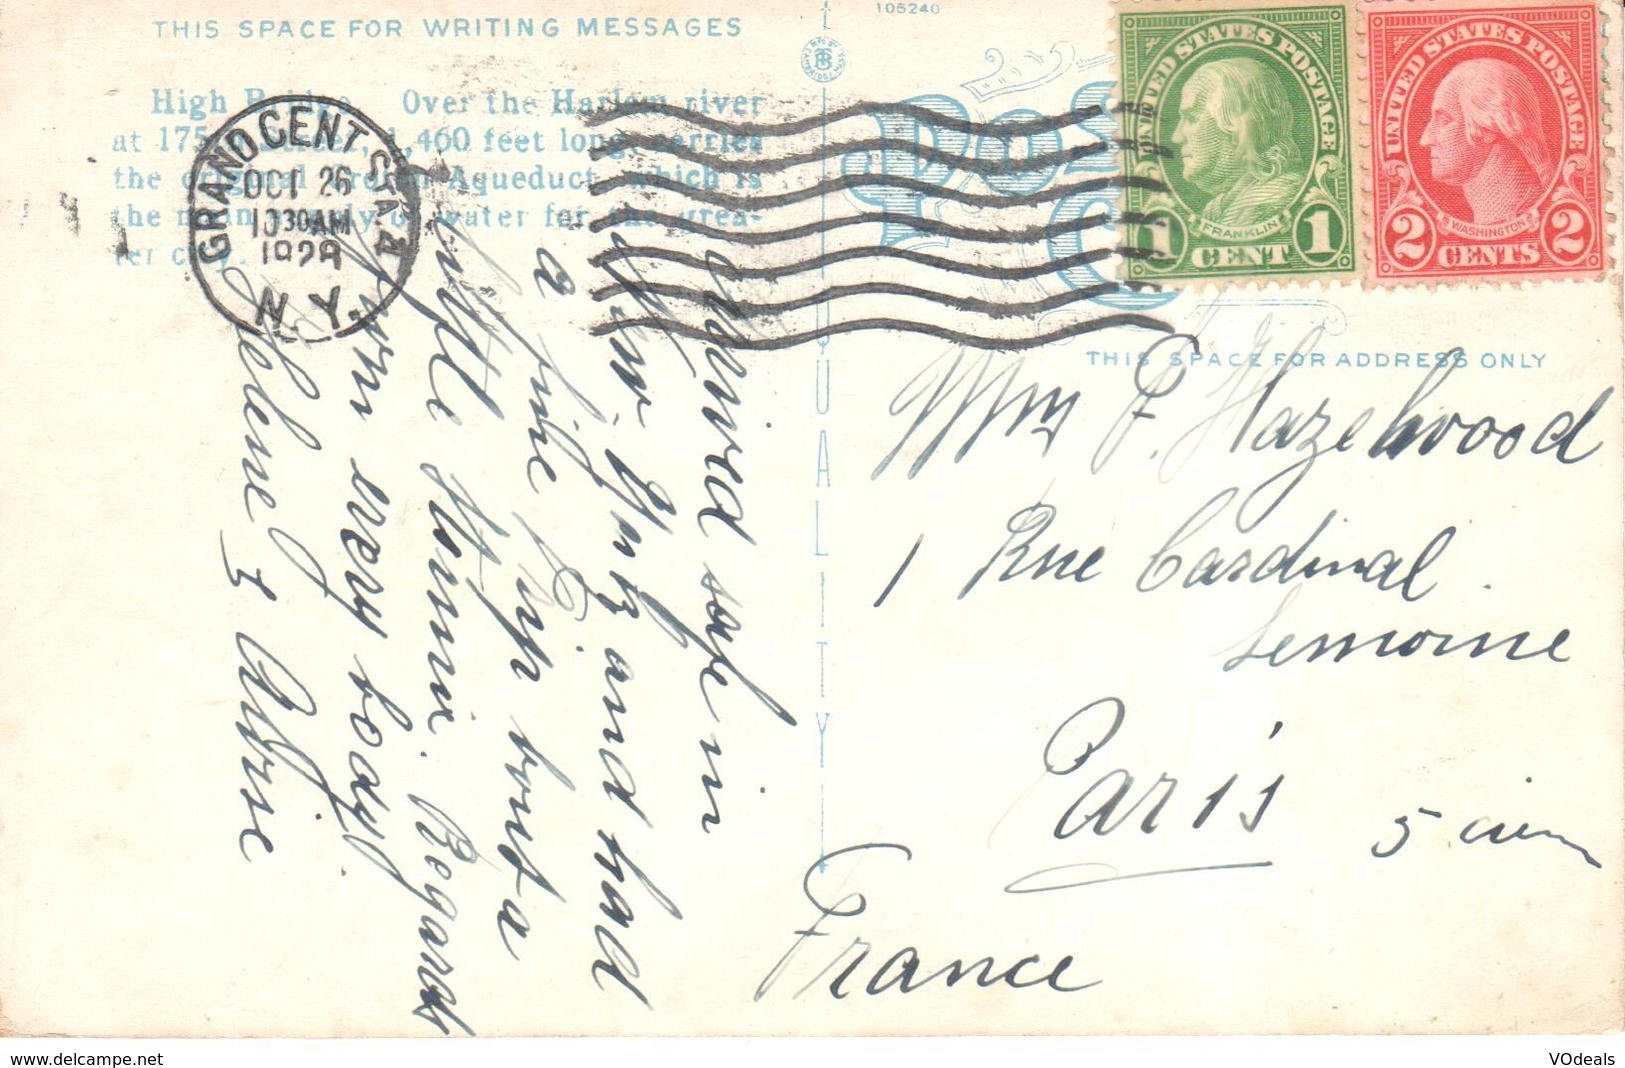 THIS SPACE FOR WRITING MESSAGES
105240
High Bridge. Over the Harlem river
at 175 1,460 feet long, carries
the Aqueduct, which is
the main of water for the grea-
ter city.
GRAND CENT. STA. N.Y.
OCT 26
10 30 AM
1928
UNITED STATES POSTAGE
FRANKLIN
1 CENT 1
UNITED STATES POSTAGE
WASHINGTON
2 CENTS 2
QUALITY
THIS SPACE FOR ADDRESS ONLY
Arrived safe in
New-York and had
a fine trip but a
little Stormie. Regards
from every body
Helene &
Mrs F. Hazelwood
1 Rue Cardinal
Lemoine
Paris
France
www.delcampe.net
VOdeals